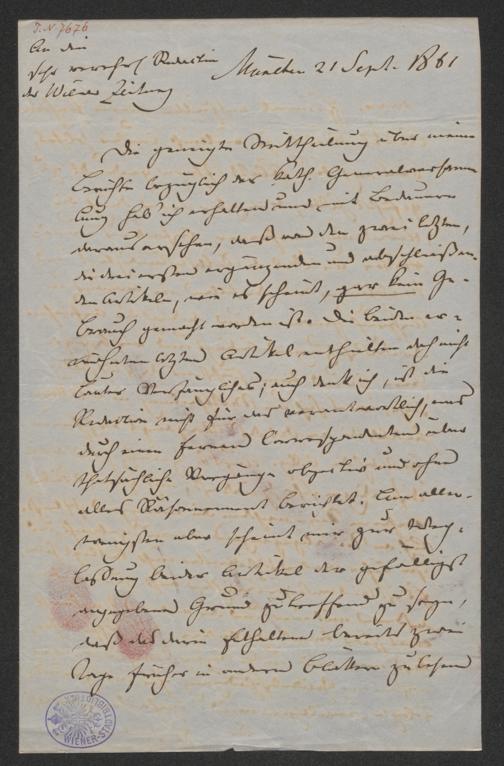 J.N. 7676
An die
sehr verehrl. Redaction
der Wiener Zeitung
München 21 Sept. 1861
Die geneigte Mittheilung über meine
Berichte bezüglich der kath. Generalversamm
lung hab ich erhalten und mit Bedauern
daraus ersehen, daß von den zwei letzten,
die drei ersten ergänzenden und abschließen
den Artikeln, wie es scheint, gar kein Ge-
brauch gemacht worden ist. Die beiden er-
wähnten letzten Artikel enthielten doch nicht
lauter Verfängliches; auch denk ich, ist die
Redaction nicht für das verantwortlich, was
durch einen fernen Correspondenten über
thatsächliche Vorgänge objectiv und ohne
alles Räsonnement berichtet. Am aller-
wenigsten aber scheint mir zur Weg-
lassung beider Artikel der gefälligst
angegebene Grund zutreffend zu sein,
daß das darin Enthaltene bereits zwei
Tage früher in andern Blättern zu lesen
WIENER STADTBIBLIOTHEK